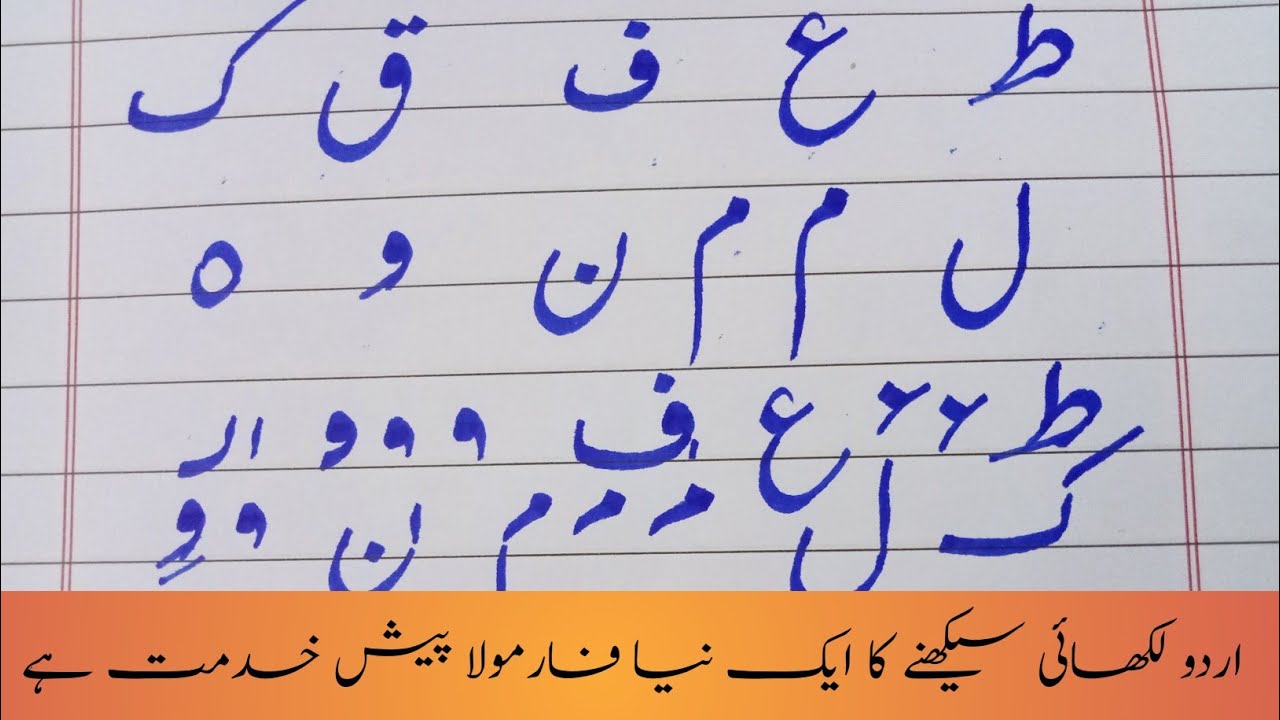 ط ع ف ق ک
ل م م ن و ہ
ط ع ف و و و ار
ک ل م ن و و
اردو لکھائی سیکھنے کا ایک نیا فارمولا پیش خدمت ہے